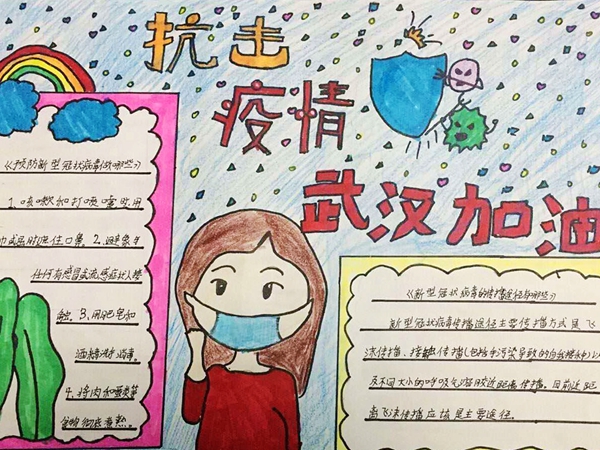 抗击
疫情
武汉加油
《预防新型冠状病毒做哪些》
1、咳嗽和打喷嚏时,用
巾或屈肘遮住口鼻。2、避免与
任何有感冒或流感症状人接
触。3、用肥皂和
洒精洗手消毒。
4、将肉和蛋类等
食物彻底煮熟。
《新型冠状病毒的传播途径有哪些》
新型冠状病毒传播途径主要传播方式是飞
沫传播、接触传播(包括手污染导致的自我接种)以
及不同大小的呼吸气溶胶近距离传播。目前近距
离飞沫传播应该是主要途径。